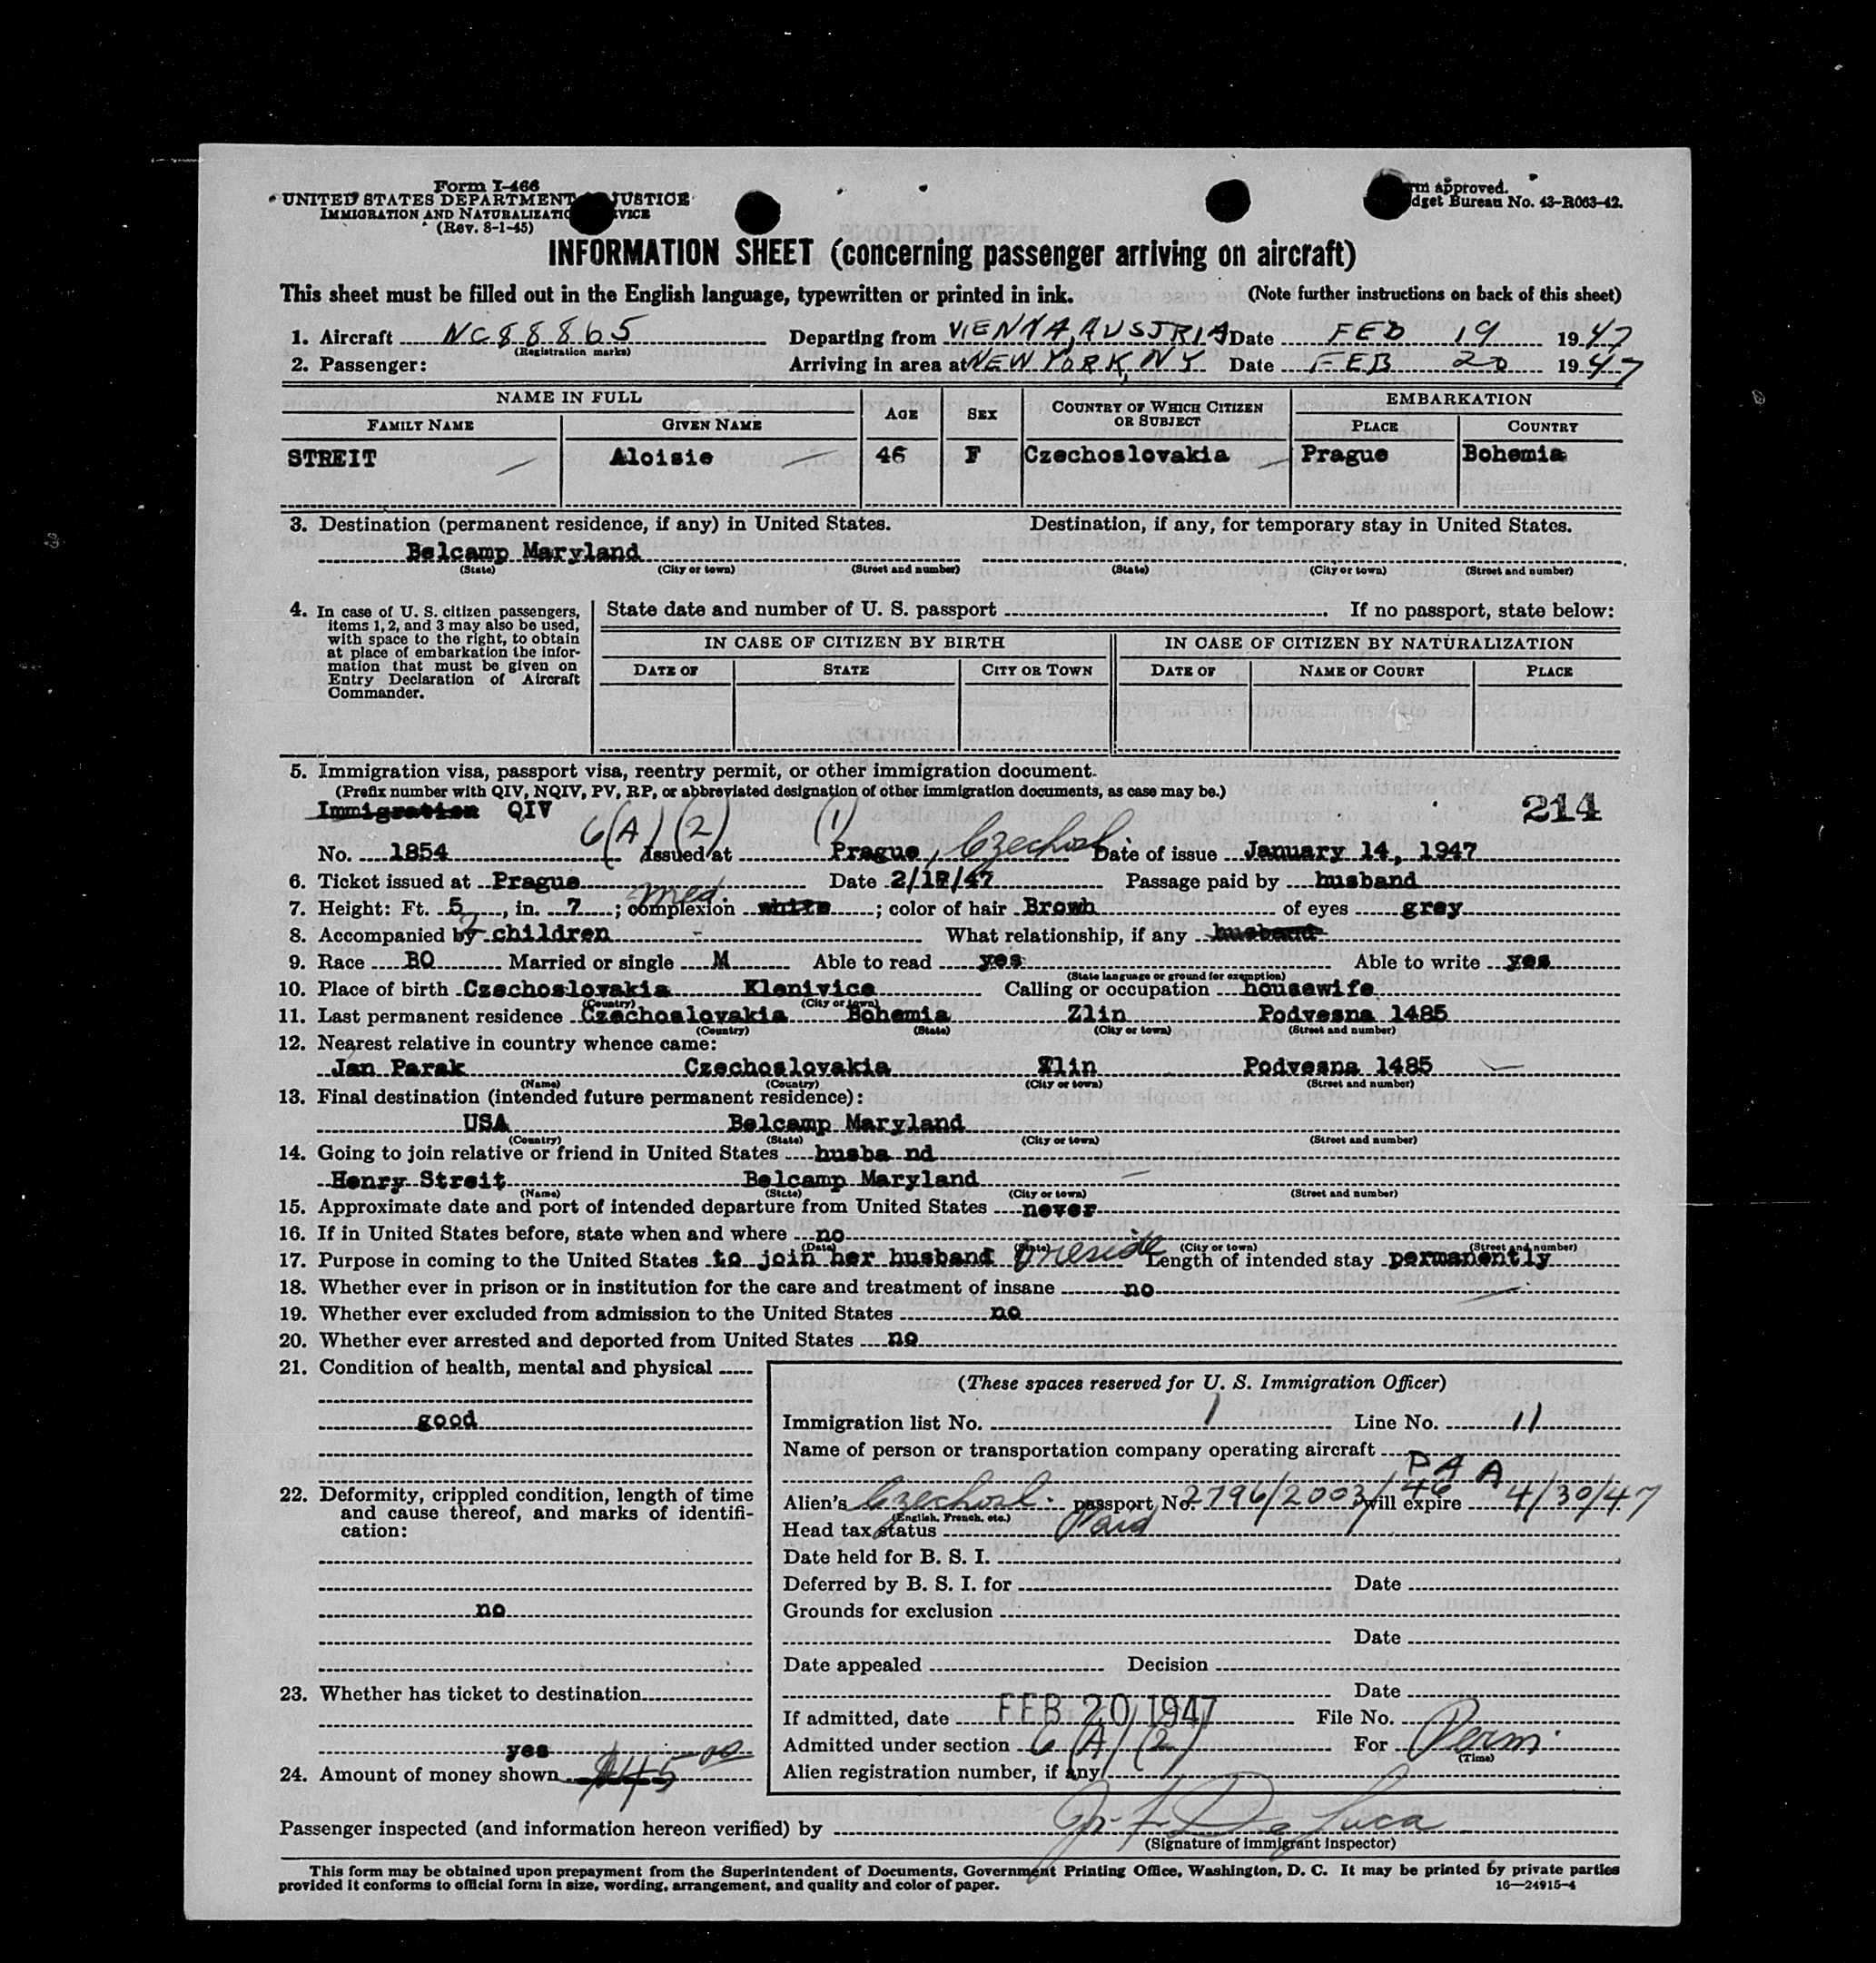 Form I-466
UNITED STATES DEPARTMENT JUSTICE
IMMIGRATION AND NATURALIZATIO VICE
(Rev. 8-1-45)
rm approved.
dget Bureau No. 43-R063-42.
INFORMATION SHEET (concerning passenger arriving on aircraft)
This sheet must be filled out in the English language, typewritten or printed in ink. (Note further instructions on back of this sheet)
1. Aircraft NC88865 Departing from VIENNA, AUSTRIA Date FEB 19 1947
(Registration marks)
2. Passenger: Arriving in area at NEW YORK, NY Date FEB 20 1947
NAME IN FULL AGE SEX COUNTRY OF WHICH CITIZEN OR SUBJECT EMBARKATION
FAMILY NAME GIVEN NAME PLACE COUNTRY
STREIT Aloisie 46 F Czechoslovakia Prague Bohemia
3. Destination (permanent residence, if any) in United States. Destination, if any, for temporary stay in United States.
Belcamp Maryland
(State) (City or town) (Street and number) (State) (City or town) (Street and number)
4. In case of U. S. citizen passengers, items 1, 2, and 3 may also be used, with space to the right, to obtain at place of embarkation the information that must be given on Entry Declaration of Aircraft Commander.
State date and number of U. S. passport If no passport, state below:
IN CASE OF CITIZEN BY BIRTH IN CASE OF CITIZEN BY NATURALIZATION
DATE OF STATE CITY OR TOWN DATE OF NAME OF COURT PLACE
5. Immigration visa, passport visa, reentry permit, or other immigration document.
(Prefix number with QIV, NQIV, PV, RP, or abbreviated designation of other immigration documents, as case may be.)
Immigration QIV 214
6(A)(2) (1)
No. 1854 Issued at Prague, Czechosl. Date of issue January 14, 1947
6. Ticket issued at Prague Date 2/18/47 Passage paid by husband
7. Height: Ft. 5, in. 7; complexion white med.; color of hair Brown of eyes grey
8. Accompanied by 2 children What relationship, if any husband
9. Race BO Married or single M Able to read yes Able to write yes
(State language or ground for exemption)
10. Place of birth Czechoslovakia Klenivice Calling or occupation housewife
(Country) (City or town)
11. Last permanent residence Czechoslovakia Bohemia Zlin Podvesna 1485
(Country) (State) (City or town) (Street and number)
12. Nearest relative in country whence came:
Jan Parak Czechoslovakia Zlin Podvesna 1485
(Name) (Country) (City or town) (Street and number)
13. Final destination (intended future permanent residence):
USA Belcamp Maryland
(Country) (State) (City or town) (Street and number)
14. Going to join relative or friend in United States husba nd
Henry Streit Belcamp Maryland
(Name) (State) (City or town) (Street and number)
15. Approximate date and port of intended departure from United States never
16. If in United States before, state when and where no
(Date) (State) (City or town) (Street and number)
17. Purpose in coming to the United States to join her husband reside Length of intended stay permanently
18. Whether ever in prison or in institution for the care and treatment of insane no
19. Whether ever excluded from admission to the United States no
20. Whether ever arrested and deported from United States no
21. Condition of health, mental and physical
good
22. Deformity, crippled condition, length of time and cause thereof, and marks of identification:
no
23. Whether has ticket to destination
yes
24. Amount of money shown $45.00
(These spaces reserved for U. S. Immigration Officer)
Immigration list No. 1 Line No. 11
Name of person or transportation company operating aircraft
PAA
Alien's Czechosl. passport No. 2796/2003/46 will expire 4/30/47
(English, French, etc.)
Head tax status Paid
Date held for B. S. I.
Deferred by B. S. I. for Date
Grounds for exclusion
Date
Date appealed Decision
Date
If admitted, date FEB 20 1947 File No.
Admitted under section 6(A)(2) For Perm.
(Time)
Alien registration number, if any
Passenger inspected (and information hereon verified) by De Luca
(Signature of immigrant inspector)
This form may be obtained upon prepayment from the Superintendent of Documents, Government Printing Office, Washington, D. C. It may be printed by private parties
provided it conforms to official form in size, wording, arrangement, and quality and color of paper. 16—24915-4